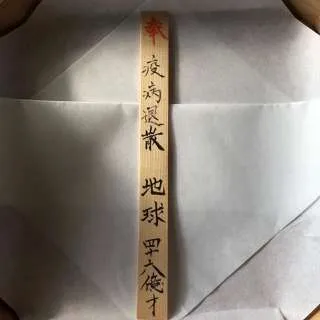 奉 疫病退散 地球 四十六億才